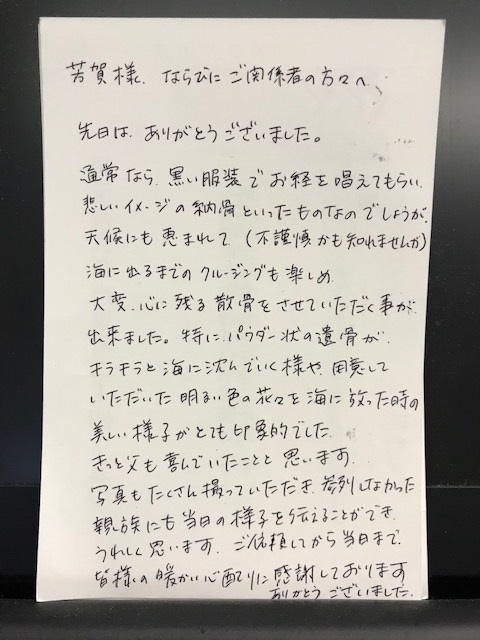 芳賀様、ならびにご関係者の方々へ、
先日は、ありがとうございました。
通常なら、黒い服装でお経を唱えてもらい、
悲しいイメージの納骨といったものなのでしょうが、
天候にも恵まれて(不謹慎かも知れませんが)
海に出るまでのクルージングも楽しめ、
大変、心に残る散骨をさせていただく事が
出来ました。特に、パウダー状の遺骨が、
キラキラと海に沈んでいく様や、用意して
いただいた明るい色の花々を海に放った時の
美しい様子がとても印象的でした。
きっと父も喜んでいたことと思います。
写真もたくさん撮っていただき、参列しなかった
親族にも当日の様子を伝えることができ、
うれしく思います。ご依頼してから当日まで、
皆様の暖かい心配りに感謝しております
ありがとうございました。